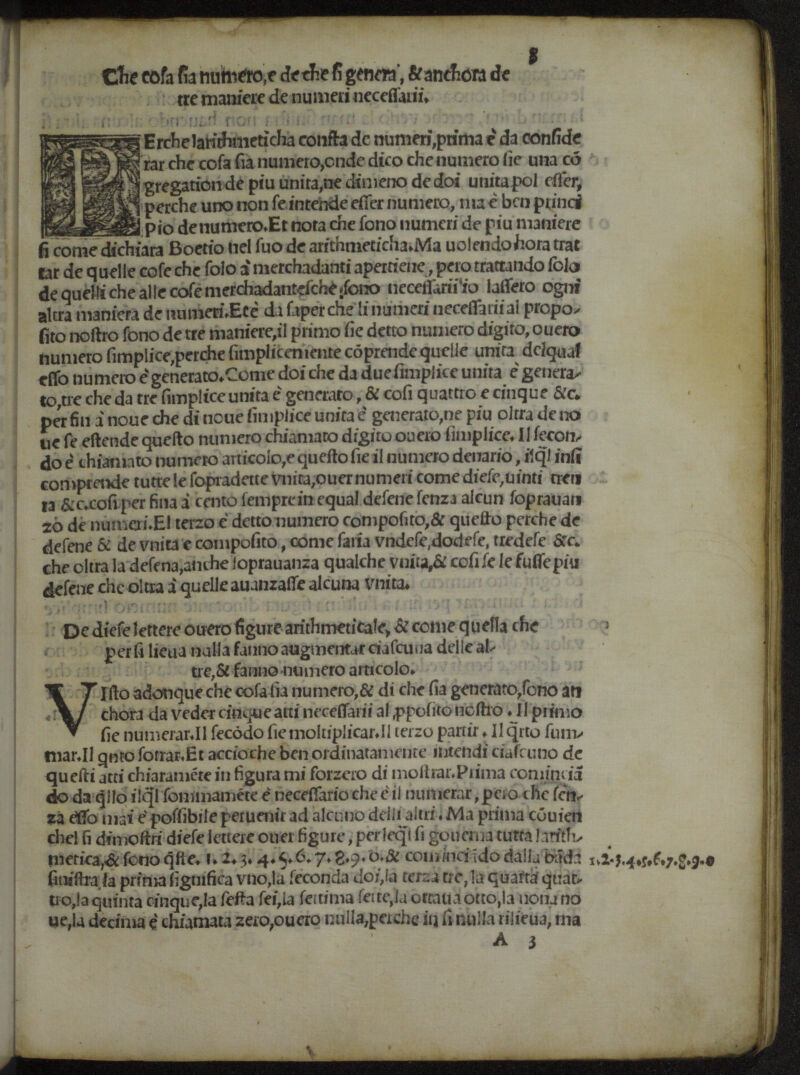 3
Che cosa sia numero, e de che si genera, & anchora de
tre maniere de numeri necessarii.
PErche larithmeticha consta de numeri, prima è da conside
rar che cosa sia numero, onde dico che numero sie una cō
gregation de piu unita, ne dimeno de doi unita pol esser,
perche uno non se intende esser numero, ma è ben princi
pio de numero. Et nota che sono numeri de piu maniere
si come dichiara Boetio nel suo de arithmeticha. Ma uolendo hora trat
tar de quelle cose che solo a merchadanti apertiene, pero trattando solo
de quelli che alle cose merchadantesche sono necessarii io lassero ogni
altra maniera de numeri. Et è da saper che li numeri necessarii al propo-
sito nostro sono de tre maniere, il primo sie detto numero digito, ouero
numero simplice, perche simplicemente cōprende quelle unita delqual
esso numero è generato. Come doi che da due simplice unita è genera-
to, tre che da tre simplice unita è generato, & cosi quattro e cinque &c.
per fin a noue che di noue simplice unita è generato, ne piu oltra de no
ue se estende questo numero chiamato digito ouero simplice. Il secon-
do è chiamato numero articolo, e questo sie il numero denario, ilql insi
comprende tutte le sopradette vnita, ouer numeri come diese, uinti tren
ta &c. cosi per fina a cento sempre in equal desene senza alcun soprauan
zo de numeri. El terzo è detto numero composito, & questo perche de
desene & de vnita e composito, come saria vndese, dodese, tredese &c.
che oltra la desena, anche soprauanza qualche vnita, & cosi se le fusse piu
desene che oltra a quelle auanzasse alcuna vnita.
De diese lettere ouero figure arithmeticale, & come quella che
per si lieua nulla fanno augmentar ciascuna delle al-
tre, & fanno numero articolo.
VIsto adonque che cosa sia numero, & di che sia generato, sono an
chora da veder cinque atti necessarii al ꝓposito nostro. Il primo
sie numerar. Il secōdo sie moltiplicar. Il terzo partir. Il qrto sum-
mar. Il qnto sotrar. Et accioche ben ordinatamente intendi ciascuno de
questi atti chiaramēte in figura mi forzero di mostrar. Prima comincia
do da qllo ilql sommamēte è necessario che è il numerar, pero che sen-
za esso mai è possibile peruenir ad alcuno delli altri. Ma prima cōuien
chel si dimostri diese lettere ouer figure, per leql si gouerna tutta larith-
metica, & sono qste. 1. 2. 3. 4. 5. 6. 7. 8. 9. 0. & comincīdo dalla bāda
sinistra la prima significa vno, la seconda doi, la terza tre, la quarta quat-
tro, la quinta cinque, la sesta sei, la settima sette, la ottaua otto, la nona no
ue, la decima è chiamata zero, ouero nulla, perche in si nulla rilieua, ma
1.2.3.4.5.6.7.8.9.0
A 3